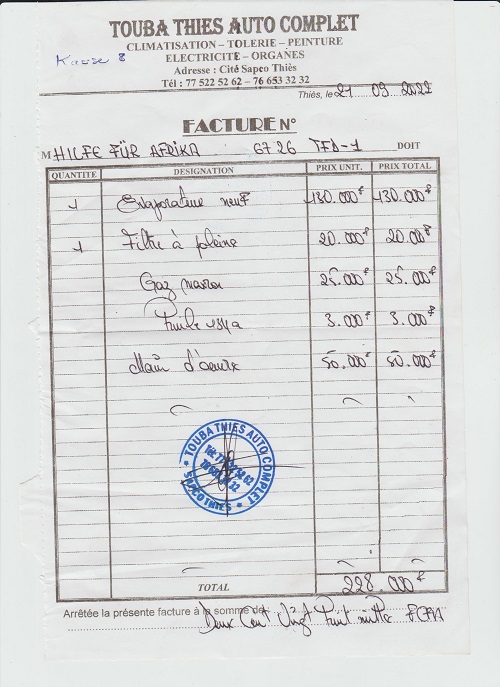 TOUBA THIES AUTO COMPLET
CLIMATISATION – TOLERIE – PEINTURE
ELECTRICITE – ORGANES
Adresse : Cité Sapco Thiès
Tél : 77 522 52 62 – 76 653 32 32
Kasse 8
Thiès, le 21 09 2022
FACTURE N°
M HILFE FÜR AFRIKA 6726 TFD-1 DOIT
QUANTITE DESIGNATION PRIX UNIT. PRIX TOTAL
1 Evaporateur neuf 130.000f 130.000f
1 Filtre à 20.000f 20.000f
Gaz 25.000f 25.000f
3.000f 3.000f
Main d'oeuvre 50.000f 50.000f
TOUBA THIES AUTO COMPLET
SAPCO THIES
TOTAL 228.000f
Arrêtée la présente facture à la somme de:
Deux Cent Vingt Huit mille FCFA